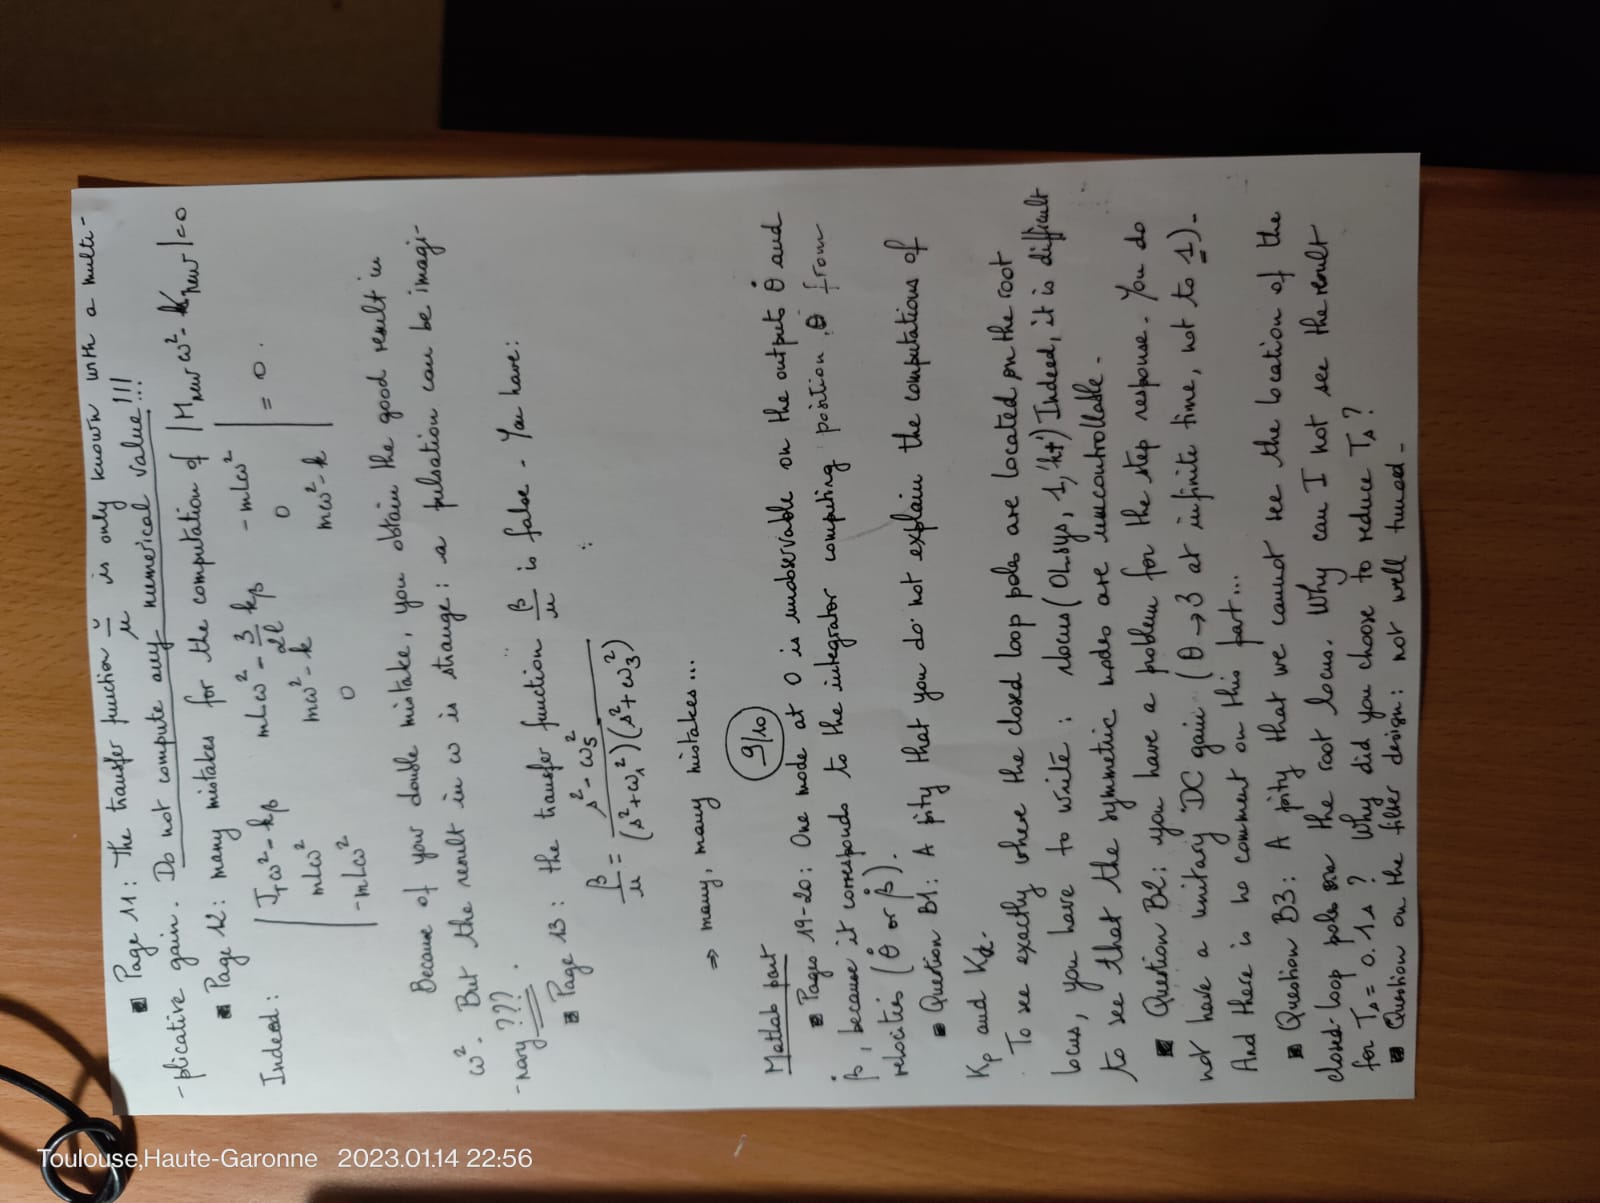 ▪ Page 11: The transfer function ÿ/u is only known with a multi-
-plicative gain. Do not compute any numerical value!!!
▪ Page 12: many mistakes for the computation of |M_new ω² - K_new| = 0
Indeed: | J_T ω² - k_β   mLω² - 3/2l k_β   - mLω² |
| mLω²   mω² - k   0 | = 0.
| - mLω²   0   mω² - k |
Because of your double mistake, you obtain the good result in
ω². But the result in ω is strange: a pulsation can be imagi-
-nary ???.
▪ Page 13: the transfer function β/u is false - You have:
β/u = (s² - ω₅²) / ((s² + ω₁²)(s² + ω₃²))
⇒ many, many mistakes...
Matlab part
9/10
▪ Pages 19-20: One mode at 0 is unobservable on the outputs θ̇ and
β̇, because it corresponds to the integrator computing position θ from
velocities (θ̇ or β̇).
▪ Question B1: A pity that you do not explain the computations of
Kp and Kd.
To see exactly where the closed loop poles are located on the root
locus, you have to write: rlocus(OLsys, 1, 'k+') Indeed, it is difficult
to see that the symmetric modes are uncontrollable.
▪ Question B2: you have a problem for the step response. You do
not have a unitary DC gain (θ → 3 at infinite time, not to 1).
And there is no comment on this part...
▪ Question B3: A pity that we cannot see the location of the
closed-loop poles on the root locus. Why can I not see the result
for Ts = 0.1s? Why did you choose to reduce Ts?
▪ Question on the filter design: not well tuned.
Toulouse,Haute-Garonne 2023.01.14 22:56